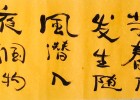 当春乃
发生随
风潜入
夜润物